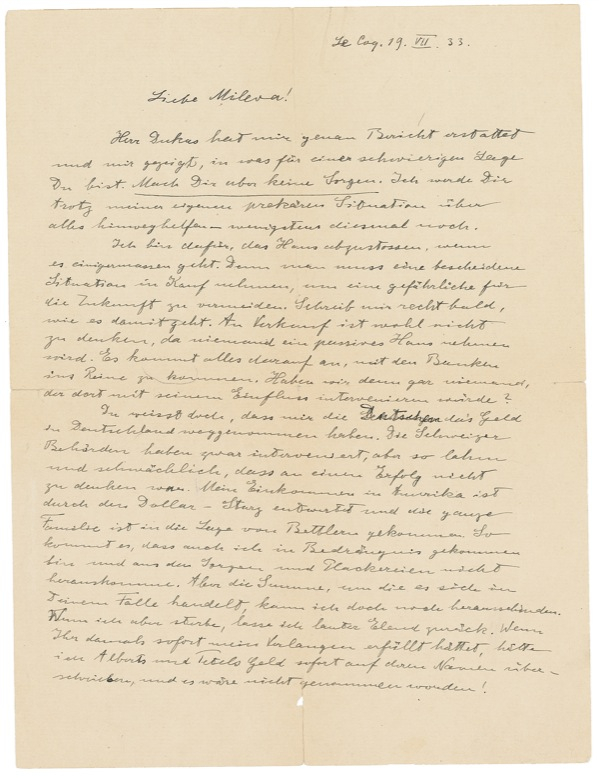 Le Coq. 19. VII. 33.
Liebe Mileva!
Herr Dukas hat mir genau Bericht erstattet
und mir gezeigt, in was für einer schwierigen Lage
Du bist. Mach Dir aber keine Sorgen. Ich werde Dir
trotz meiner eigenen prekären Situation über
alles hinweghelfen – wenigstens diesmal noch.
Ich bin dafür, das Haus abzustossen, wenn
es einigermassen geht. Denn man muss eine bescheidene
Situation in Kauf nehmen, um eine gefährliche für
die Zukunft zu vermeiden. Schreib mir recht bald,
wie es damit geht. An Verkauf ist wohl nicht
zu denken, da niemand ein passives Haus nehmen
wird. Es kommt alles darauf an, mit den Banken
ins Reine zu kommen. Haben wir denn gar niemand,
der dort mit seinem Einfluss intervenieren würde?
Du weisst doch, dass mir die Deutschen das Geld
in Deutschland weggenommen haben. Die Schweizer
Behörden haben zwar interveniert, aber so lahm
und schmächlich, dass an einen Erfolg nicht
zu denken war. Mein Einkommen in Amerika ist
durch den Dollar-Sturz entwertet und die ganze
Familie ist in die Lage von Bettlern gekommen. So
kommt es, dass auch ich in Bedrängnis gekommen
bin und aus den Sorgen und Plackereien nicht
herauskomme. Aber die Summe, um die es sich in
Deinem Falle handelt, kann ich doch noch herausschinden.
Wenn ich aber sterbe, lasse ich lauter Elend zurück. Wenn
Ihr damals sofort mein Verlangen erfüllt hättet, hätte
ich Alberts und Tetels Geld sofort auf deren Namen über-
schrieben, und es wäre nicht genommen worden!